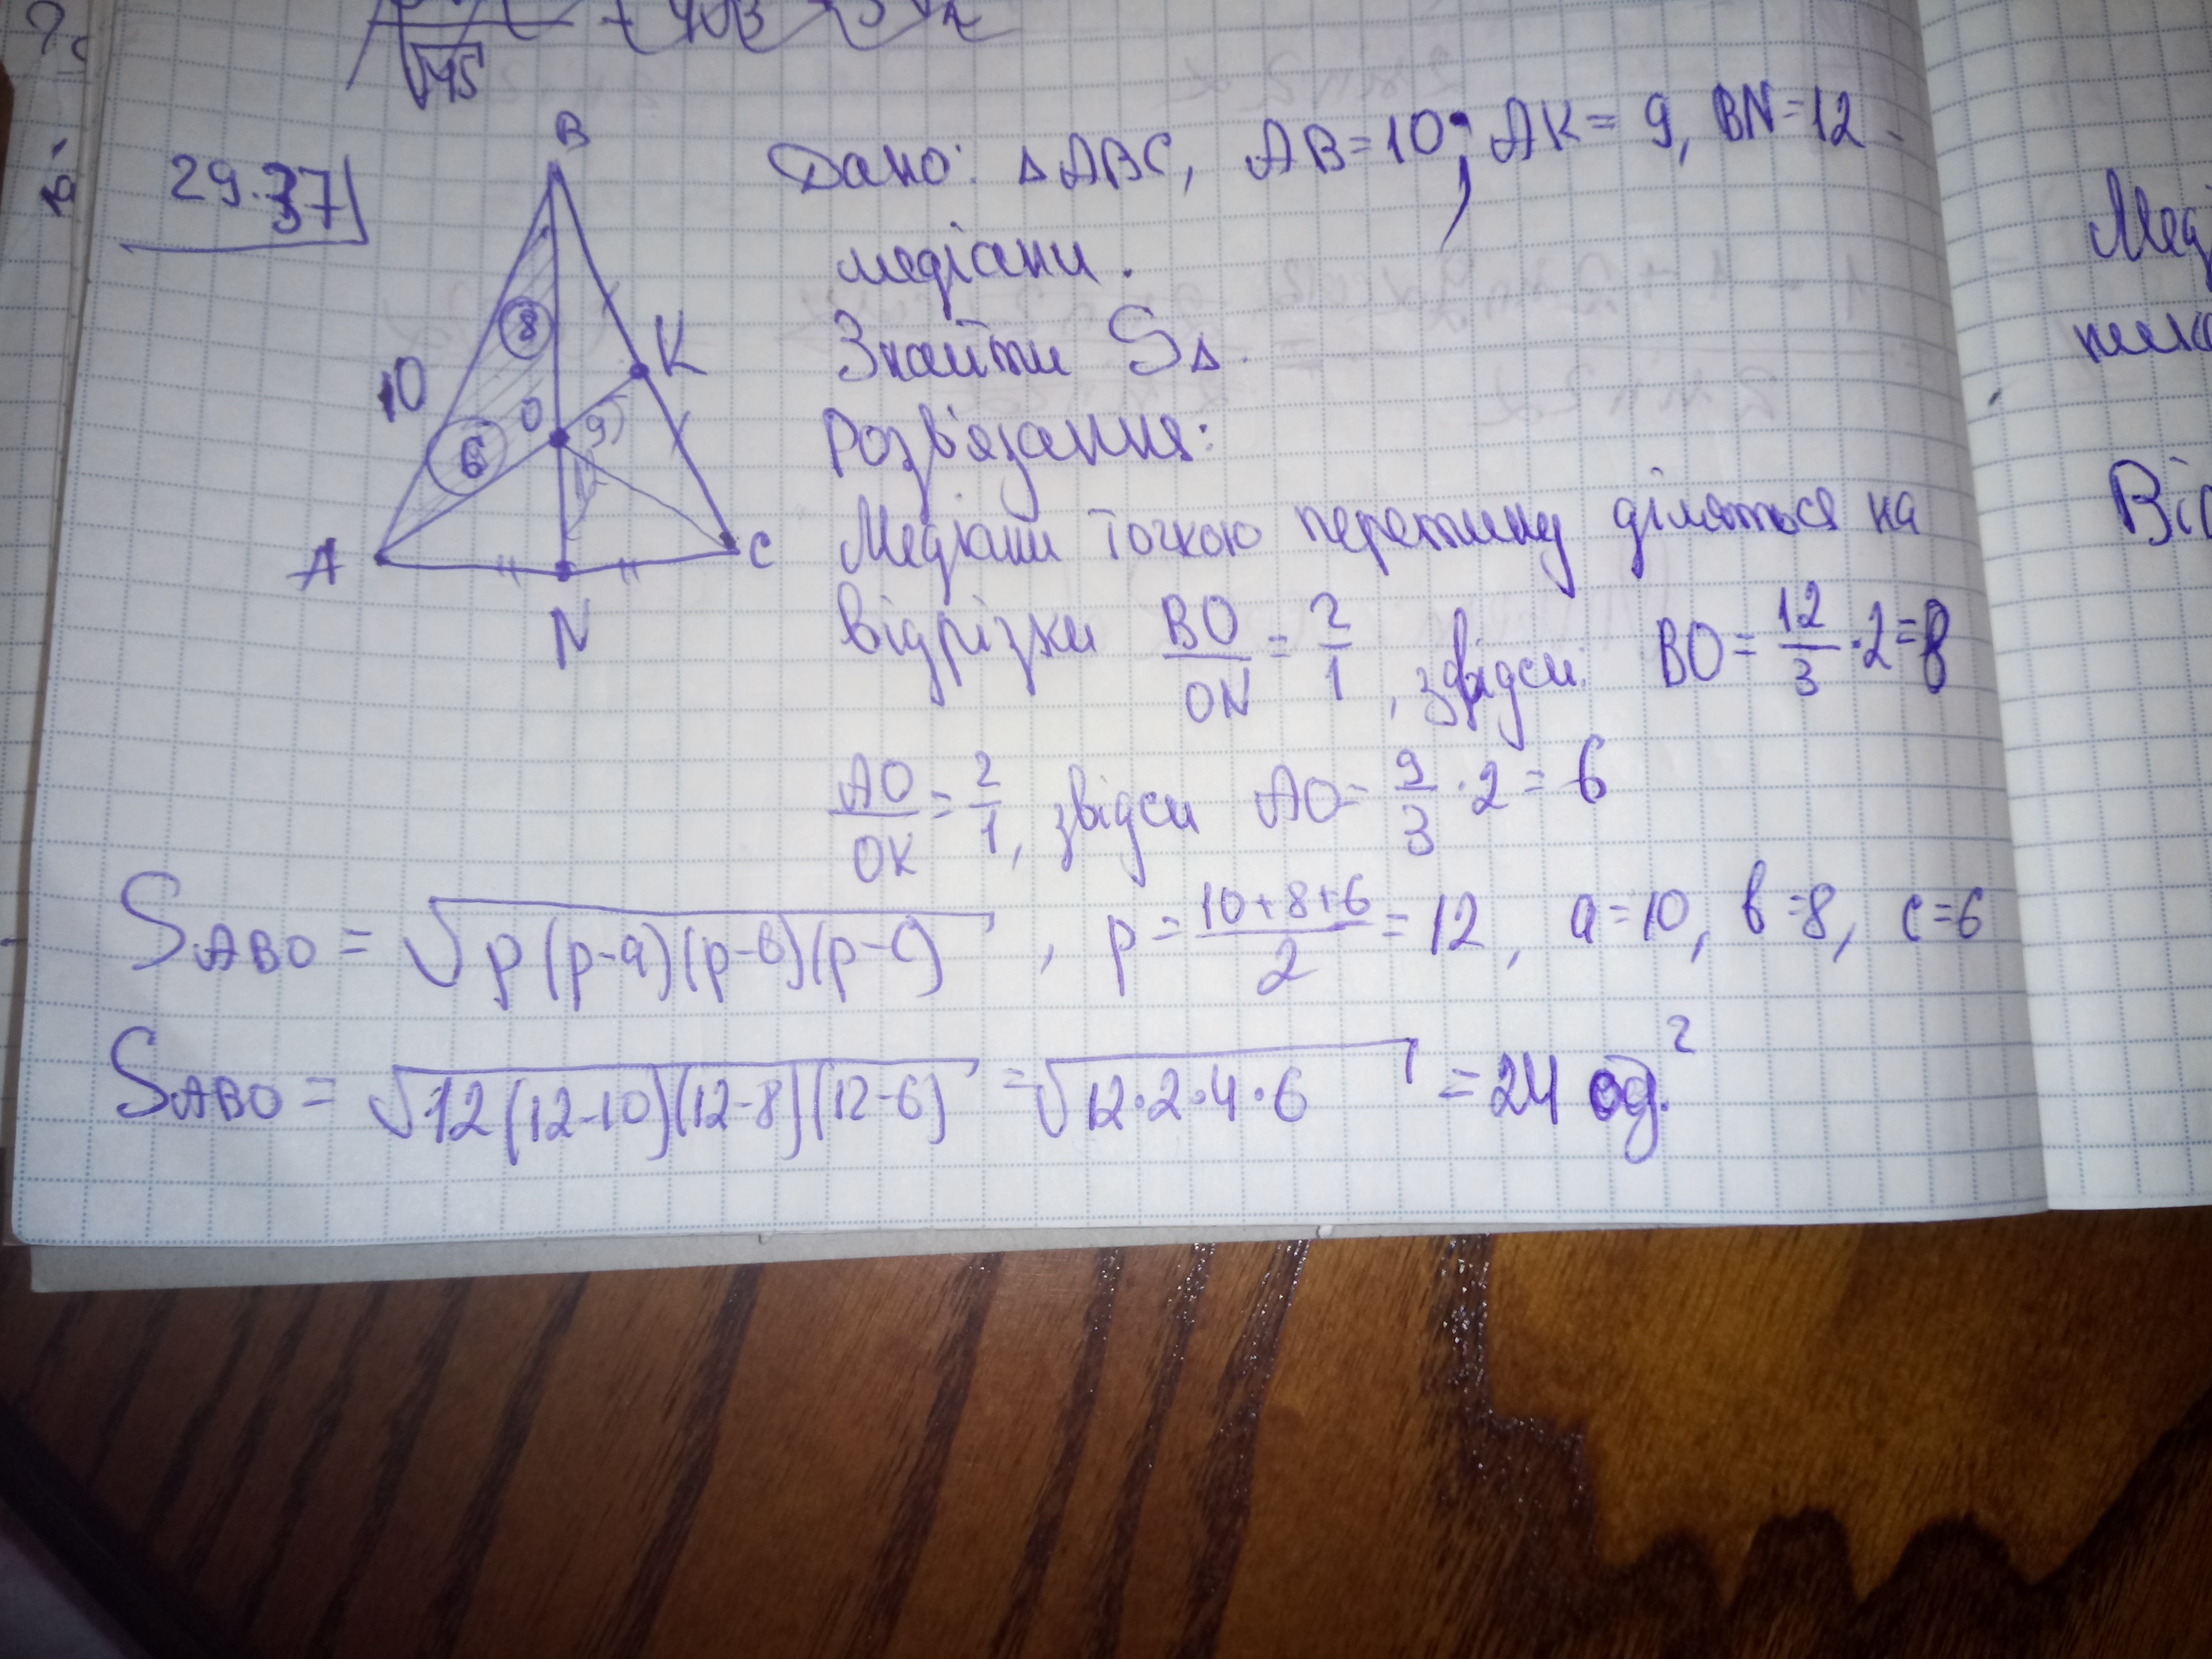 √45
29.37
B
8
10
K
O
9
6
A
C
N
Дано: △ABC, AB=10, AK=9, BN=12 -
медіани.
Знайти S△.
Розв'язання:
Медіани точкою перетину діляться на
відрізки BO/ON = 2/1, звідси: BO = 12/3 · 2 = 8
AO/OK = 2/1, звідси AO = 9/3 · 2 = 6
S ABO = √p(p-a)(p-b)(p-c), p = (10+8+6)/2 = 12, a=10, b=8, c=6
S ABO = √12(12-10)(12-8)(12-6) = √12·2·4·6 = 24 од.²
Мед
Від